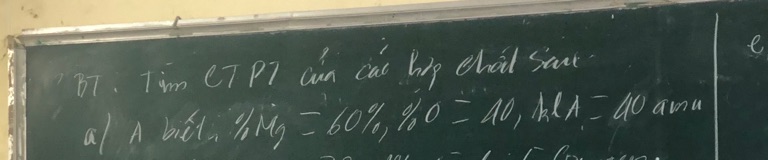 BT: Tìm CTPT của các hợp chất sau
a/ A biết. %Mg = 60%, %O = 40, klA = 40 amu
e